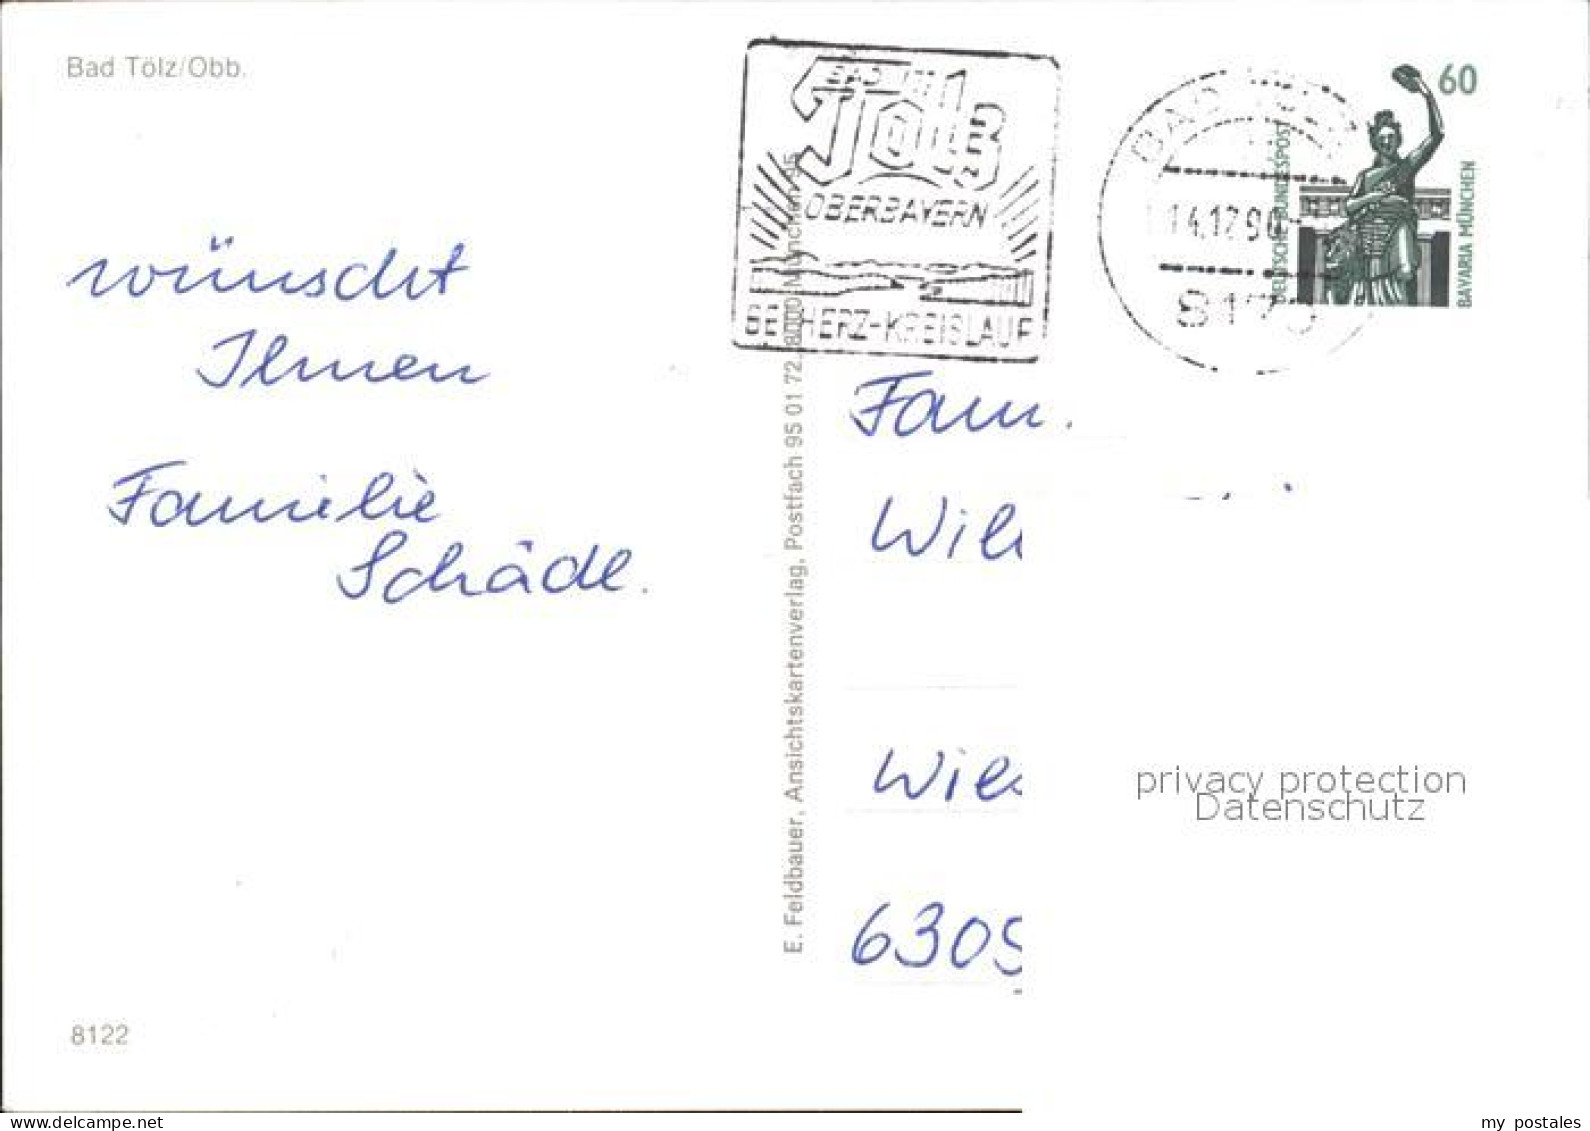 Bad Tölz/Obb.
wünscht
Ihnen
Familie
Schädl.
8122
E. Feldbauer, Ansichtskartenverlag, Postfach 95 01 72, 8000 München 95
BAD
Tölz
OBERBAYERN
BEI HERZ-KREISLAUF
BAD TÖLZ
14.12.90
8170
60
DEUTSCHE BUNDESPOST
BAVARIA MÜNCHEN
Fam.
6309
privacy protection
Datenschutz
www.delcampe.net
my_postales